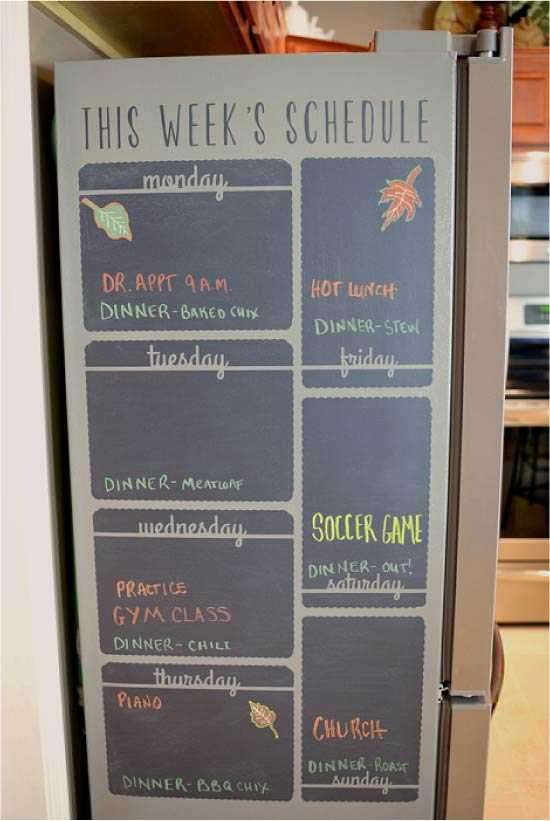 THIS WEEK'S SCHEDULE
monday
DR. APPT 9 A.M.
DINNER-BAKED CHIX
tuesday
DINNER-MEATLOAF
wednesday
PRACTICE
GYM CLASS
DINNER-CHILI
thursday
PIANO
DINNER-BBQ CHIX
HOT LUNCH
DINNER-STEW
friday
SOCCER GAME
DINNER-OUT!
saturday
CHURCH
DINNER-ROAST
sunday